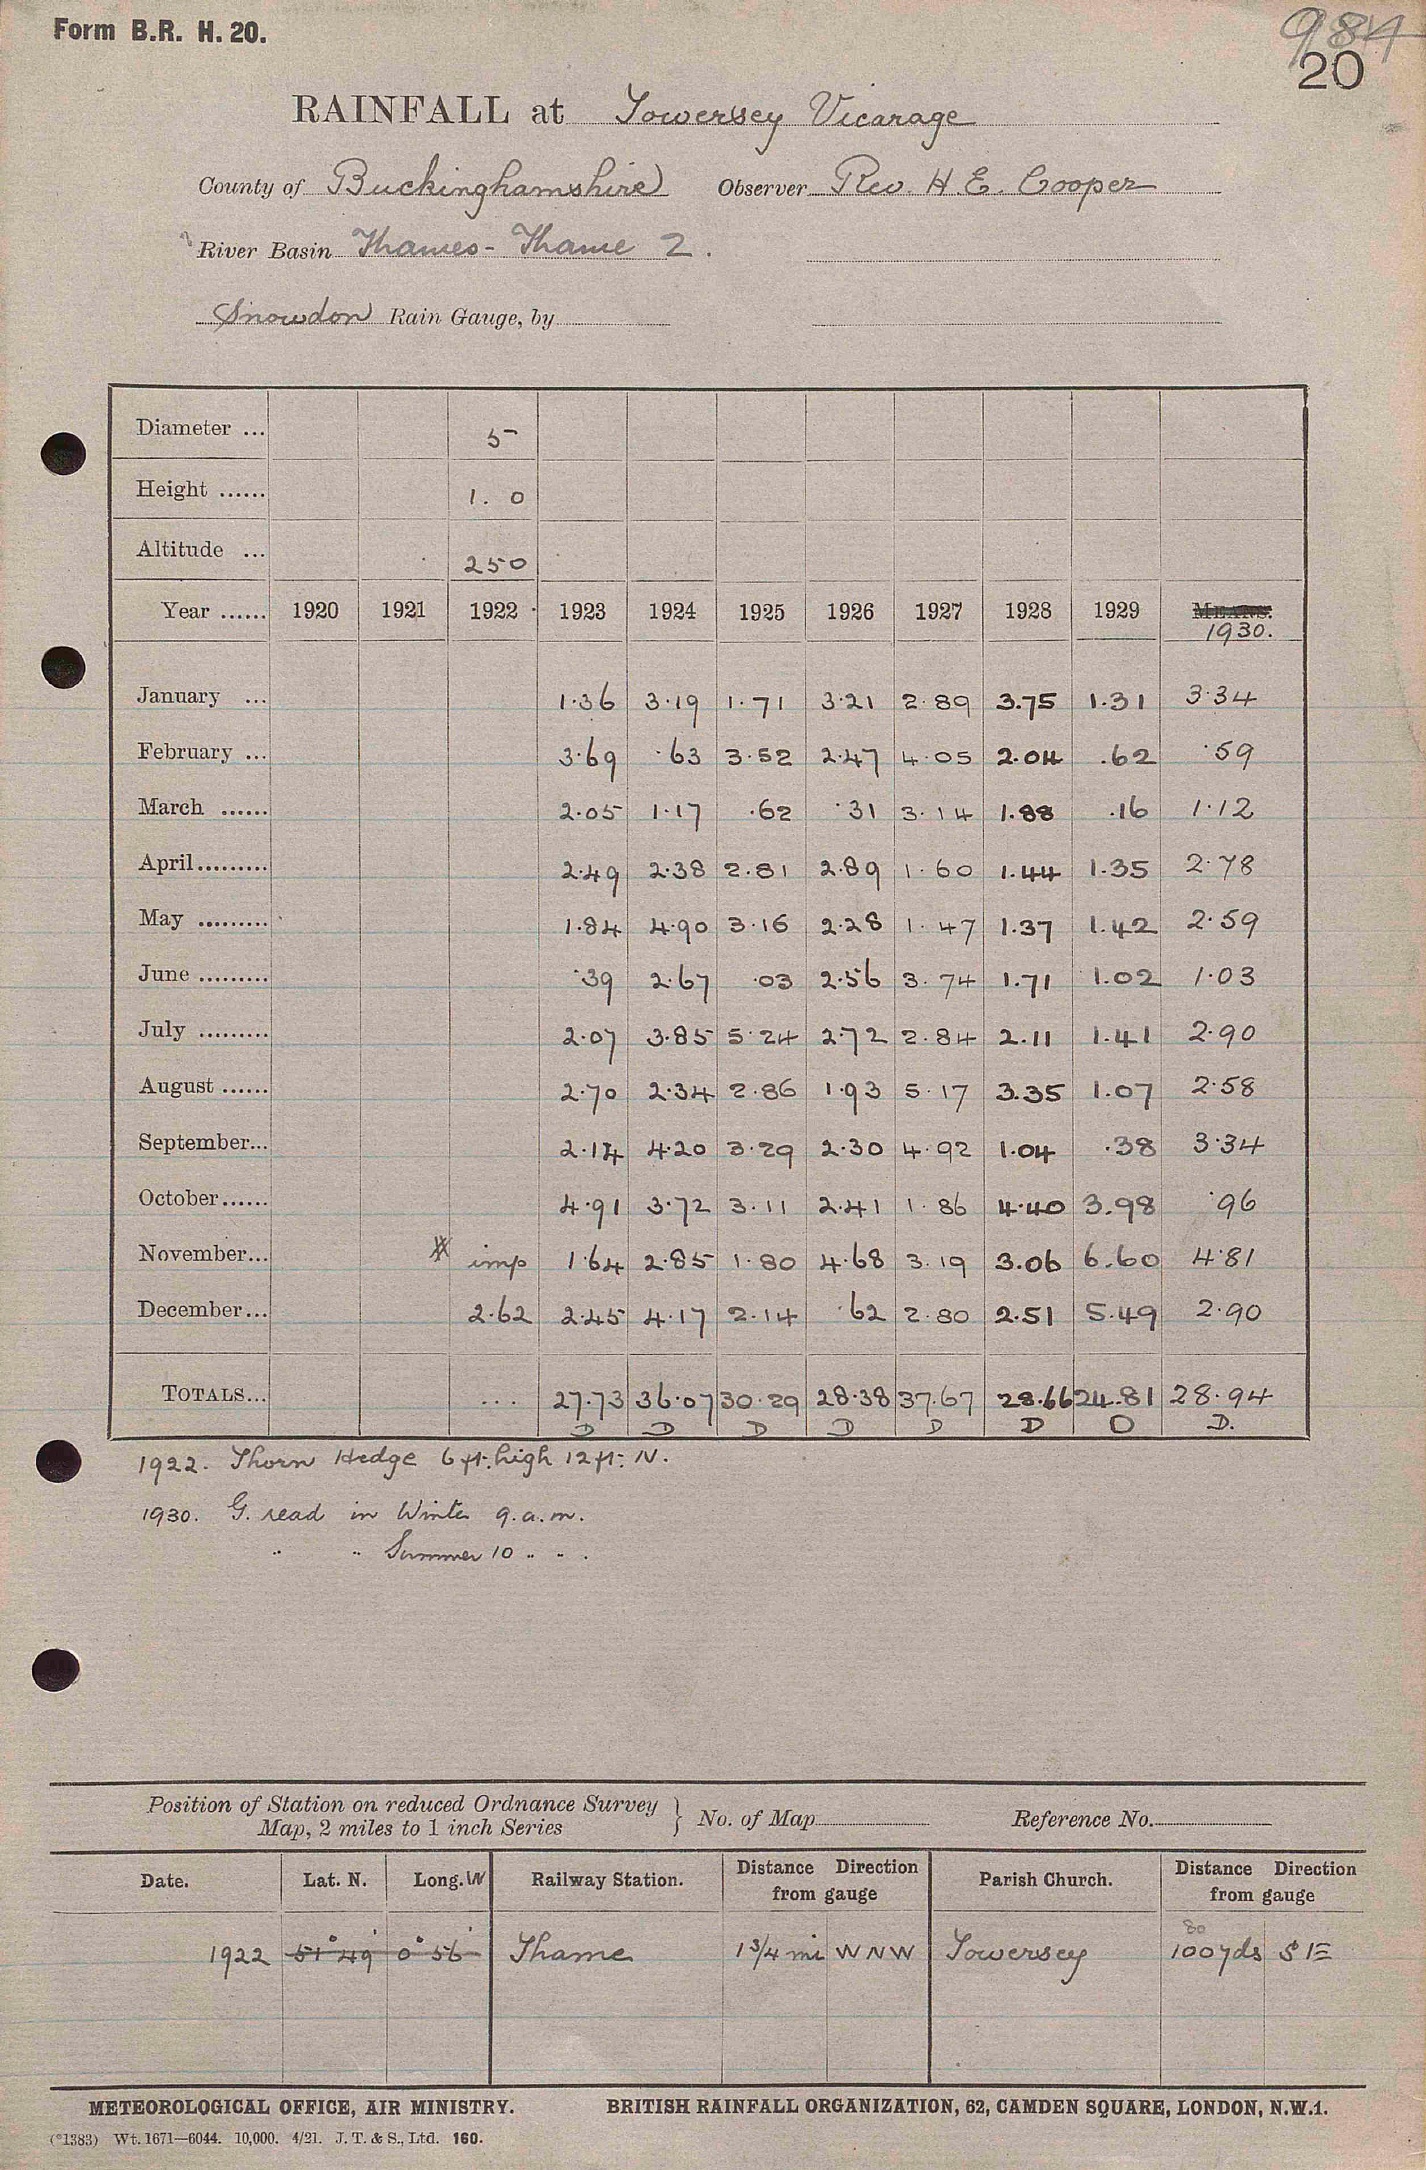 Form B.R. H. 20.
984
20
RAINFALL at Towersey Vicarage
County of Buckinghamshire Observer Rev. H. E. Cooper
River Basin Thames - Thame 2.
Snowdon Rain Gauge, by
Diameter ... 5
Height ...... 1. 0
Altitude ... 250
Year ...... 1920 1921 1922 1923 1924 1925 1926 1927 1928 1929 MEANS.
1930.
January ... 1.36 3.19 1.71 3.21 2.89 3.75 1.31 3.34
February ... 3.69 .63 3.52 2.47 4.05 2.04 .62 .59
March ...... 2.05 1.17 .62 .31 3.14 1.88 .16 1.12
April......... 2.49 2.38 2.81 2.89 1.60 1.44 1.35 2.78
May ......... 1.84 4.90 3.16 2.28 1.47 1.37 1.42 2.59
June ......... .39 2.67 .03 2.56 3.74 1.71 1.02 1.03
July ......... 2.07 3.85 5.24 2.72 2.84 2.11 1.41 2.90
August ...... 2.70 2.34 2.86 1.93 5.17 3.35 1.07 2.58
September... 2.14 4.20 3.29 2.30 4.92 1.04 .38 3.34
October...... 4.91 3.72 3.11 2.41 1.86 4.40 3.98 .96
November... imp 1.64 2.85 1.80 4.68 3.19 3.06 6.60 4.81
December... 2.62 2.45 4.17 2.14 .62 2.80 2.51 5.49 2.90
TOTALS... ... 27.73 36.07 30.29 28.38 37.67 28.66 24.81 28.94
D D D D D D D D.
1922. Thorn Hedge 6 ft. high 12 ft. N.
1930. G. read in Winter 9. a. m.
" " Summer 10 " " .
Position of Station on reduced Ordnance Survey
Map, 2 miles to 1 inch Series } No. of Map Reference No.
Date. Lat. N. Long. W Railway Station. Distance Direction from gauge Parish Church. Distance Direction from gauge
80
1922 51° 49' 0° 56' Thame 1 3/4 mi W N W Towersey 100 yds S E
METEOROLOGICAL OFFICE, AIR MINISTRY. BRITISH RAINFALL ORGANIZATION, 62, CAMDEN SQUARE, LONDON, N.W.1.
(*1383) Wt. 1671—6044. 10,000. 4/21. J. T. & S., Ltd. 160.